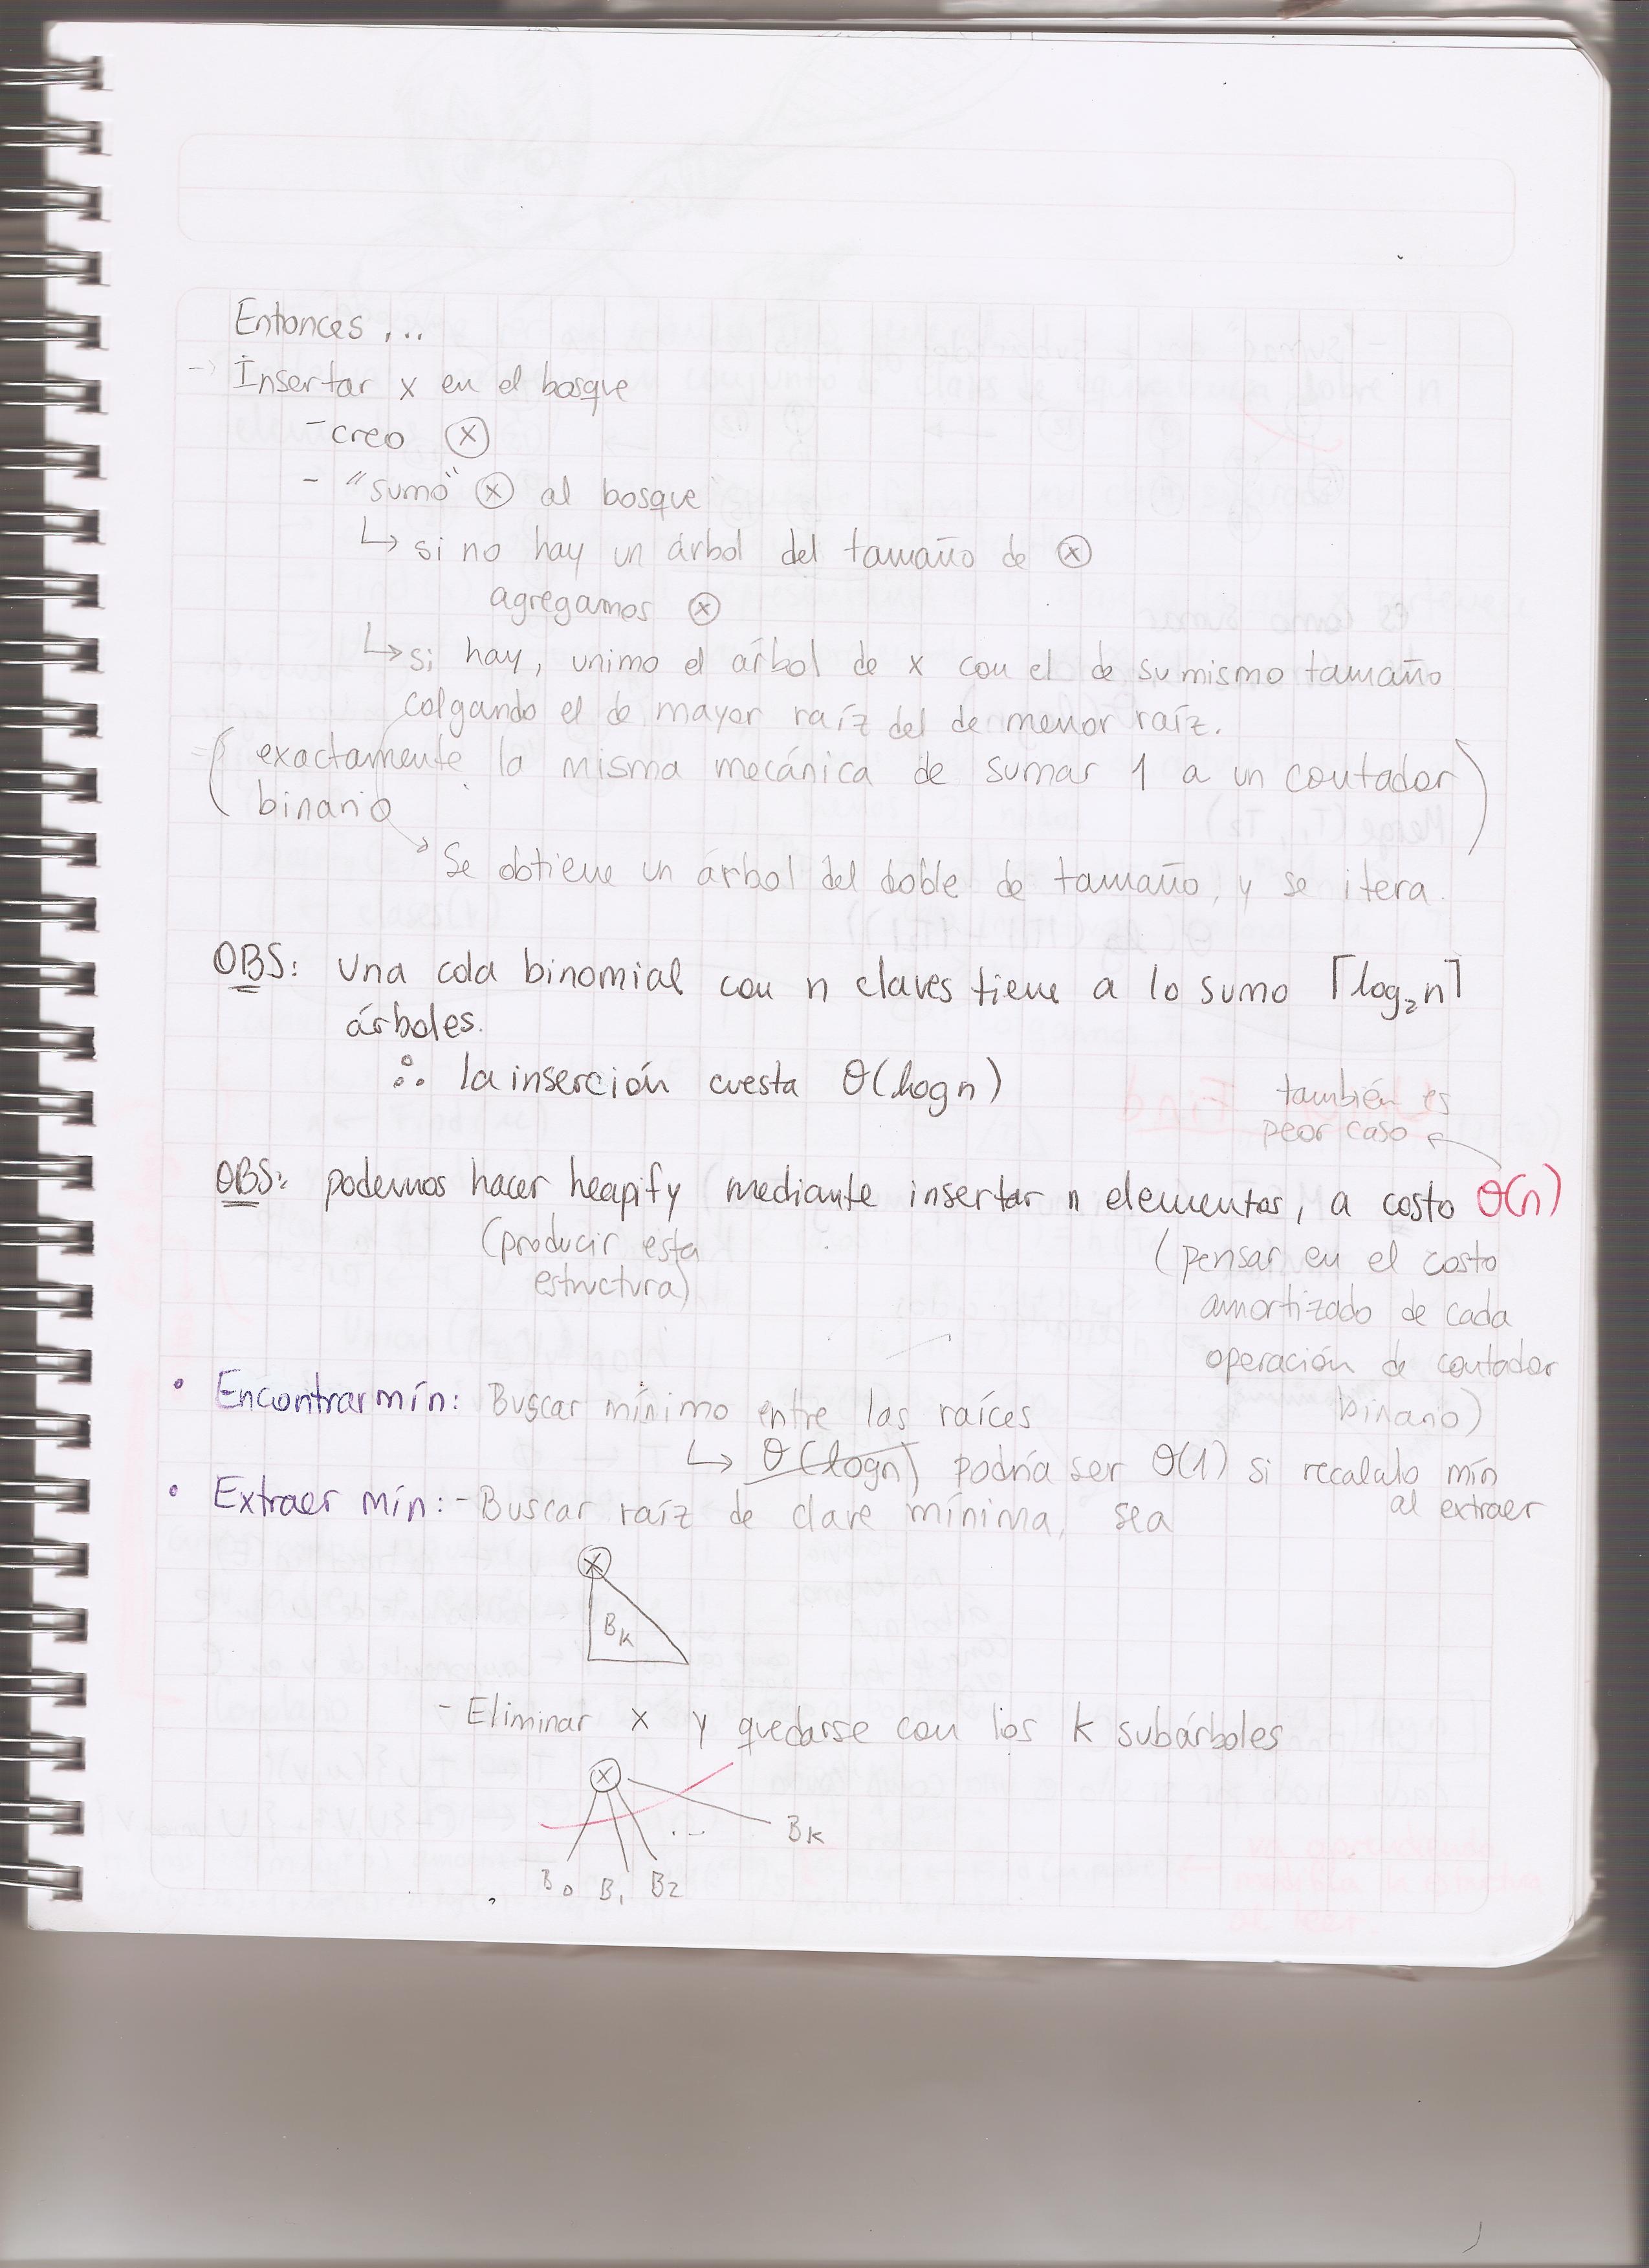 Entonces ...
→ Insertar x en el bosque
- creo ⓧ
- "sumo" ⓧ al bosque
↳ si no hay un árbol del tamaño de ⓧ
agregamos ⓧ
↳ si hay, unimo el árbol de x con el de su mismo tamaño
colgando el de mayor raíz del de menor raíz.
(exactamente la misma mecánica de sumar 1 a un contador
binario)
→ Se obtiene un árbol del doble de tamaño, y se itera.
OBS: Una cola binomial con n claves tiene a lo sumo ⌈log₂n⌉
árboles.
∴ la inserción cuesta θ(log n)
también es
peor caso ←
OBS: podemos hacer heapify mediante insertar n elementos, a costo θ(n)
(producir esta
estructura)
(pensar en el costo
amortizado de cada
operación de contador
binario)
• Encontrar mín: Buscar mínimo entre las raíces
↳ θ(logn) podría ser θ(1) si recalculo mín
al extraer
• Extraer mín: - Buscar raíz de clave mínima, sea
x
Bk
- Eliminar x y quedarse con los k subárboles
x
B0 B1 B2 ... Bk